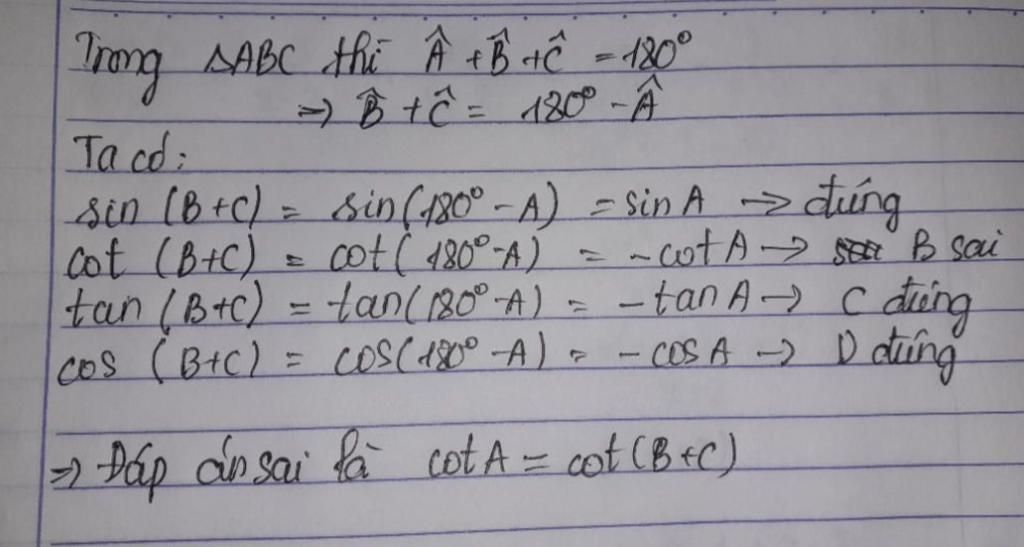 Trong ΔABC thì Â + B̂ + Ĉ = 180°
=> B̂ + Ĉ = 180° - Â
Ta có:
sin (B+C) = sin(180° - A) = sin A → đúng
cot (B+C) = cot(180° - A) = - cot A → B sai
tan (B+C) = tan(180° - A) = - tan A → C đúng
cos (B+C) = cos(180° - A) = - cos A → D đúng
=> Đáp án sai là cot A = cot(B+C)